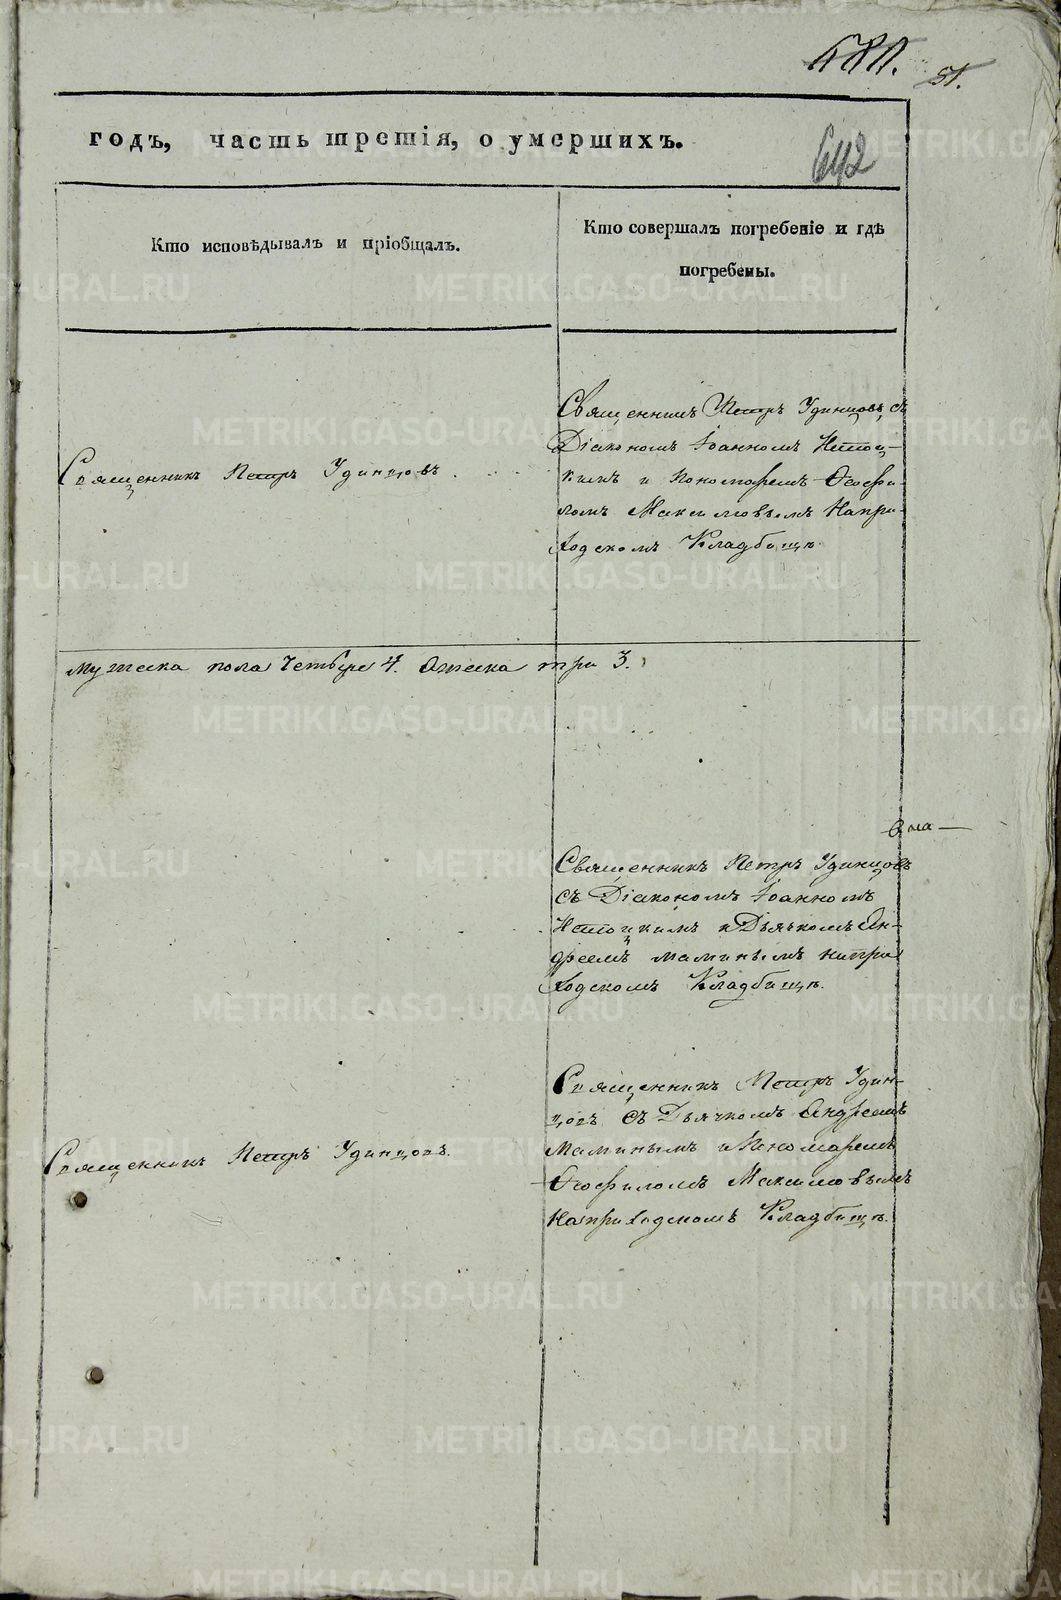 51.
годъ, часть третія, о умершихъ.
642
Кто исповѣдывалъ и пріобщалъ.
Кто совершалъ погребеніе и гдѣ
погребены.
Священникъ Петръ Удинцовъ.
Священникъ Петръ Удинцовъ, съ
Діакономъ Іоанномъ
и Пономаремъ Ѳеофи-
ломъ Максимовымъ Напри-
ходскомъ Кладбищѣ.
Мужеска пола Четыре 4. Женска три 3.
Священникъ Петръ Удинцовъ
съ Діакономъ Іоанномъ
и Дьячкомъ Ан-
дреемъ Маминымъ напри
ходскомъ Кладбищѣ.
Священникъ Петръ Удинцовъ.
Священникъ Петръ Удин-
цовъ съ Дьячкомъ Андреемъ
Маминымъ и Пономаремъ
Ѳеофиломъ Максимовымъ
Наприходскомъ Кладбищѣ.
METRIKI.GASO-URAL.RU